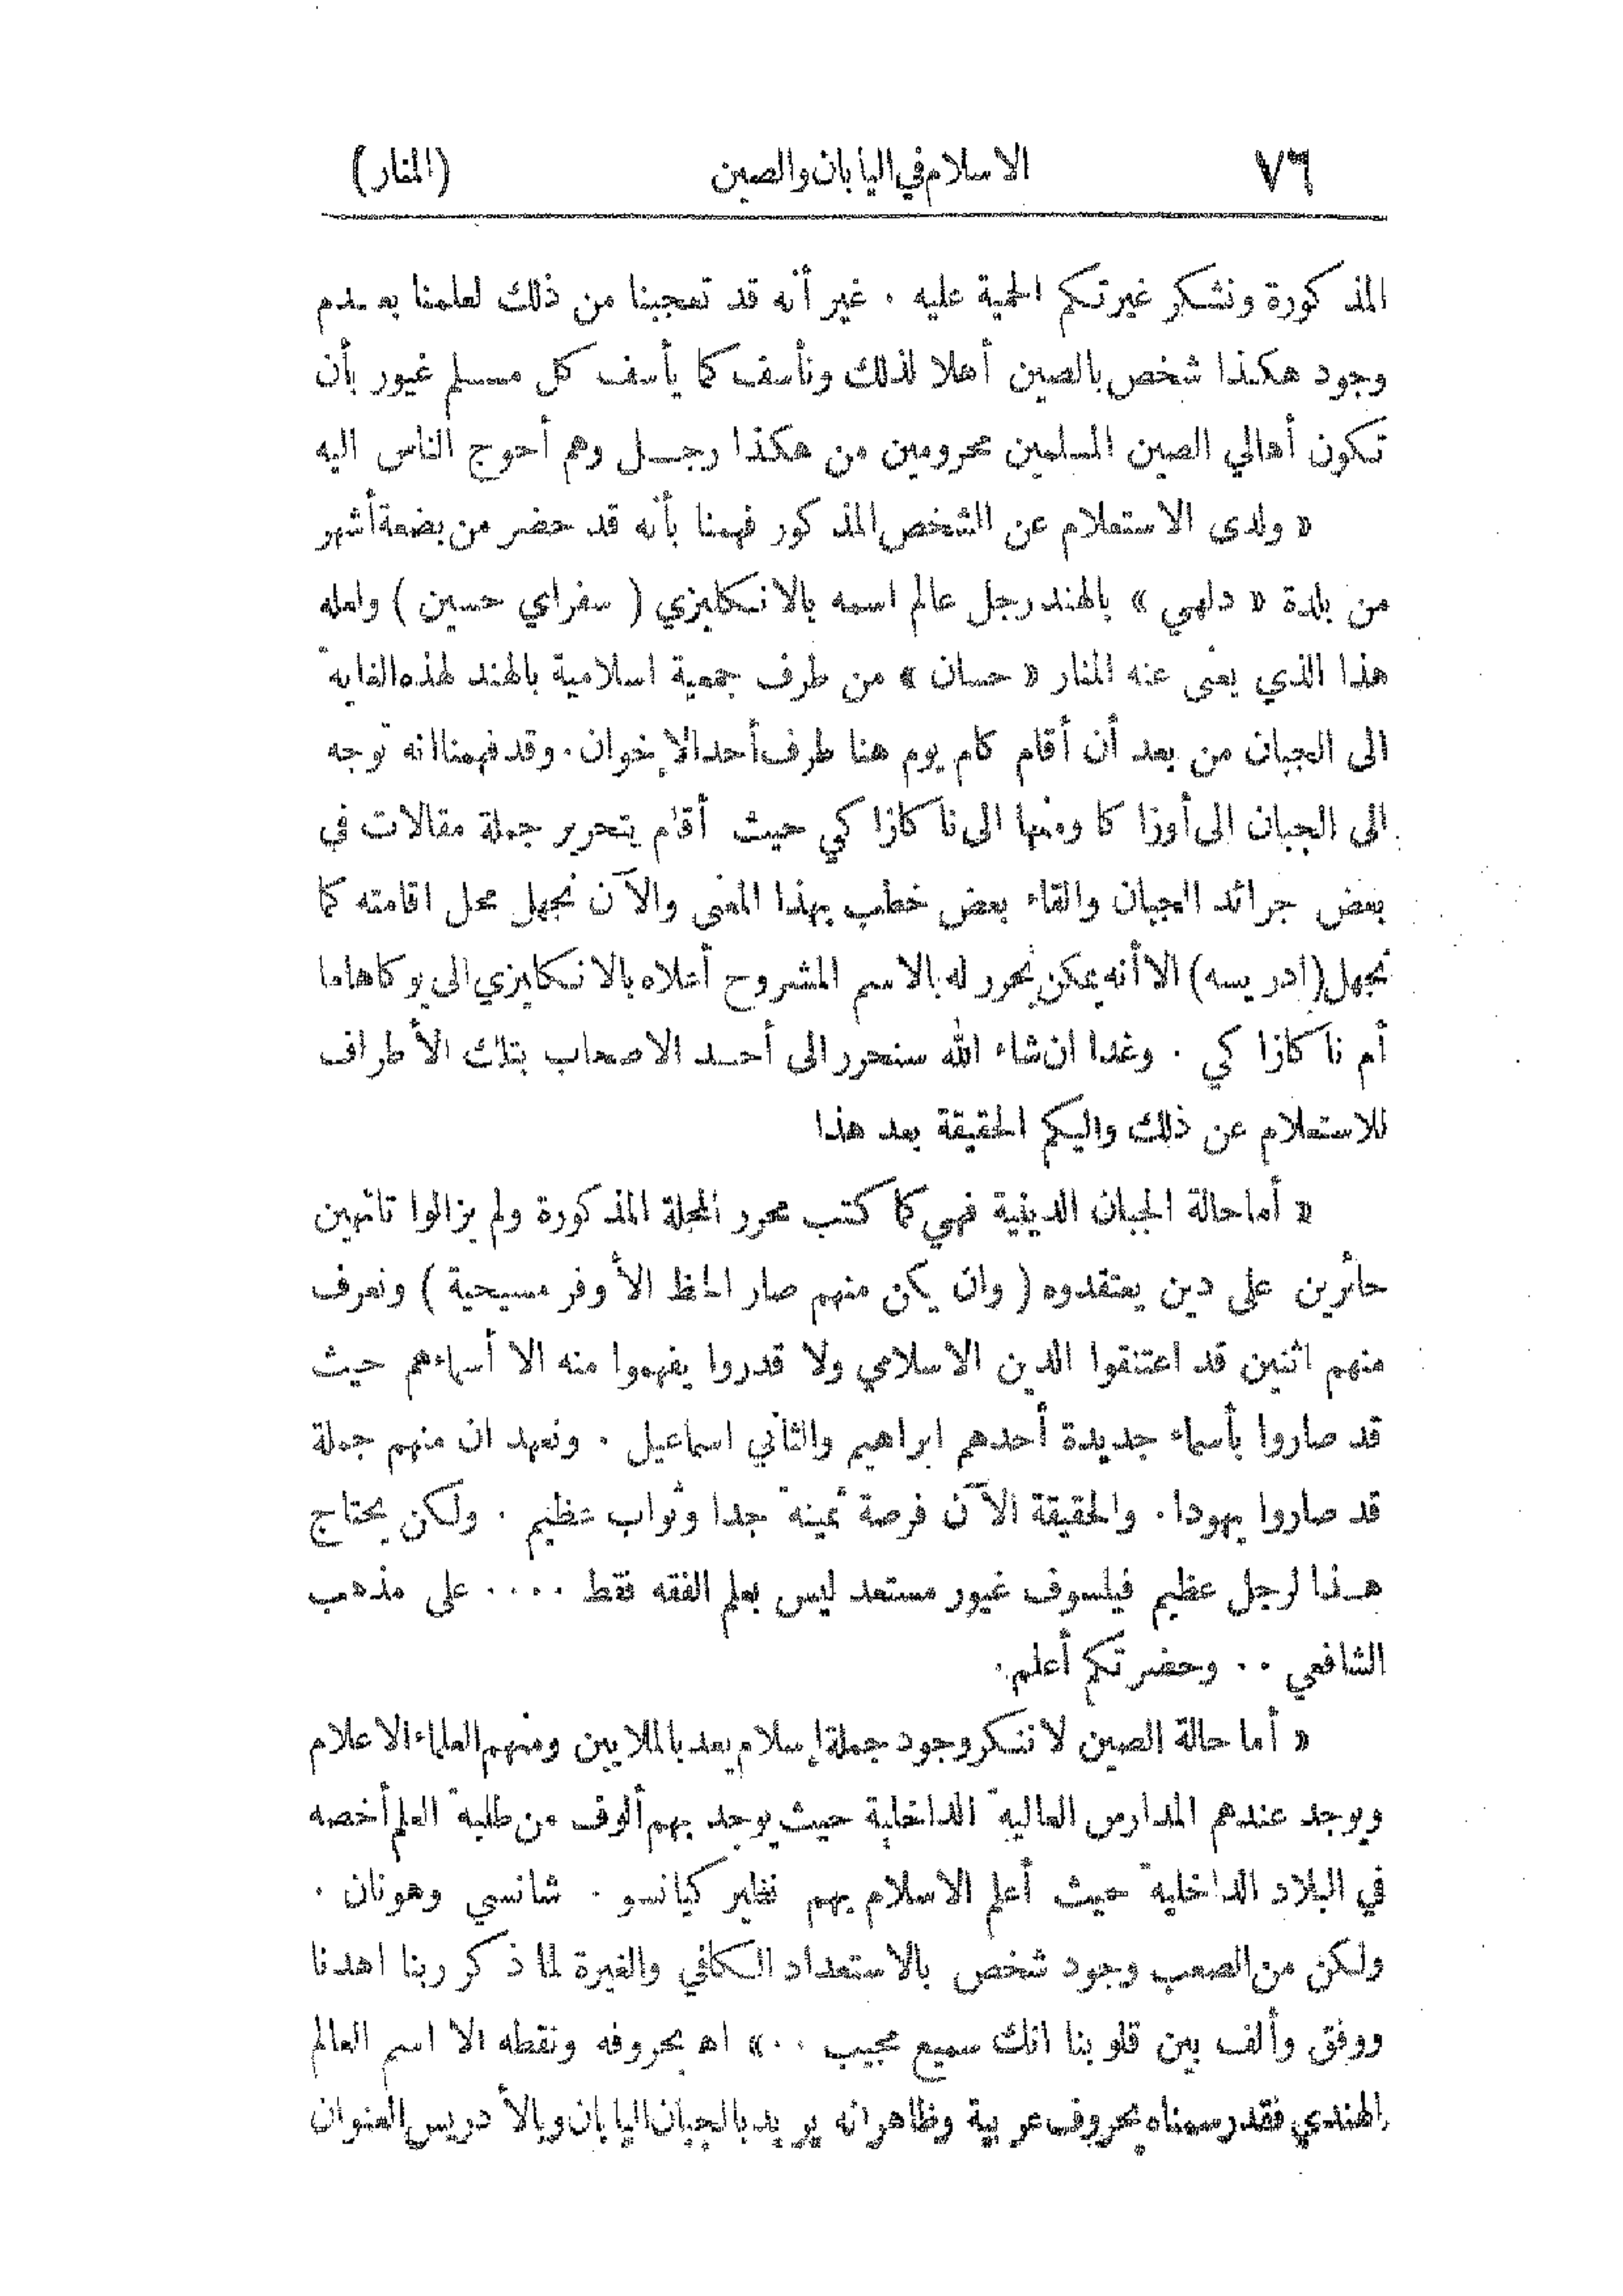 ٧٦ الاسلام في اليابان والصين (المنار)
المذكورة ونشكر غيرتكم الحمية عليه . غير أنه قد تعجبنا من ذلك لعلمنا بعدم
وجود هكذا شخص بالصين أهلا لذلك ونأسف كما يأسف كل مسلم غيور بأن
تكون أهالي الصين المسلمين محرومين من هكذا رجل وهم أحوج الناس اليه
« ولدى الاستعلام عن الشخص المذكور فهمنا بأنه قد حضر من بضعة أشهر
من بلدة « دلهي » بالهند رجل عالم اسمه بالانكليزي ( سفراي حسين ) ولعله
هذا الذي يعنى عنه المنار « حسان » من طرف جمعية اسلامية بالهند لهذه الغاية
الى الجبان من بعد أن أقام كام يوم هنا طرف أحد الإخوان . وقد فهمنا انه توجه
الى الجبان الى أوزاكا ومنها الى ناكازاكي حيث أقام يتحرير جملة مقالات في
بعض جرائد الجبان والقاء بعض خطب بهذا المعنى والآن نجهل محل اقامته كما
نجهل (ادريسه) الا أنه يمكن يحرر له بالاسم المشروح أعلاه بالانكليزي الى يوكاهاما
أم ناكازاكي . وغدا ان شاء الله سنحرر الى أحد الاصحاب بتلك الأطراف
للاستعلام عن ذلك واليكم الحقيقة بعد هذا
« أما حالة الجبان الدينية فهي كما كتب محرر المجلة المذكورة ولم يزالوا تائهين
حائرين على دين يعتقدوه ( وان يكن منهم صار الحظ الأوفر مسيحية ) ونعرف
منهم اثنين قد اعتنقوا الدين الاسلامي ولا قدروا يفهموا منه الا أسماءهم حيث
قد صاروا بأسماء جديدة أحدهم ابراهيم والثاني اسماعيل . ونعهد ان منهم جملة
قد صاروا يهودا . والحقيقة الآن فرصة ثمينة جدا وثواب عظيم . ولكن يحتاج
هذا لرجل عظيم فيلسوف غيور مستعد ليس بعلم الفقه فقط .... على مذهب
الشافعي .. وحضرتكم أعلم .
« أما حالة الصين لا ننكر وجود جملة إسلام يعد بالملايين ومنهم العلماء الاعلام
ويوجد عندهم المدارس العالية الداخلية حيث يوجد بهم ألوف من طلبة العلم أخصه
في البلاد الداخلية حيث أعلم الاسلام بهم نظير كيانسو . شانسي وهونان .
ولكن من الصعب وجود شخص بالاستعداد الكافي والغيرة لما ذكر ربنا اهدنا
ووفق وألف بين قلوبنا انك سميع مجيب . . » اه بحروفه ونقطه الا اسم العالم
الهندي فقد رسمناه بحروف عربية وظاهر انه يريد بالجبان اليابان وبالأدريس العنوان